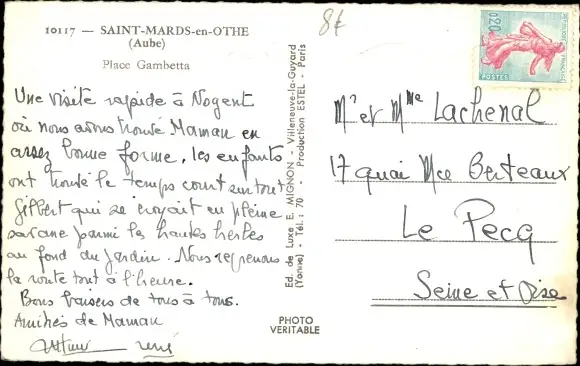 10117 — SAINT-MARDS-en-OTHE
(Aube)
Place Gambetta
8€
Une visite rapide à Nogent
où nous avons trouvé Maman en
assez bonne forme. Les enfants
ont trouvé le temps court surtout
Gilbert qui se croyait en pleine
savane parmi les hautes herbes
au fond du jardin. Nous reprenons
la route tout à l'heure.
Bons baisers de tous à tous.
Amitiés de Maman
René
Ed. de Luxe E. MIGNON - Villeneuve-la-Guyard
(Yonne) - Tél.: 70 - Production ESTEL - Paris
PHOTO
VERITABLE
0,20
REPUBLIQUE FRANÇAISE
POSTES
Mr et Mme Lachenal
17 quai Mce Berteaux
Le Pecq
Seine et Oise